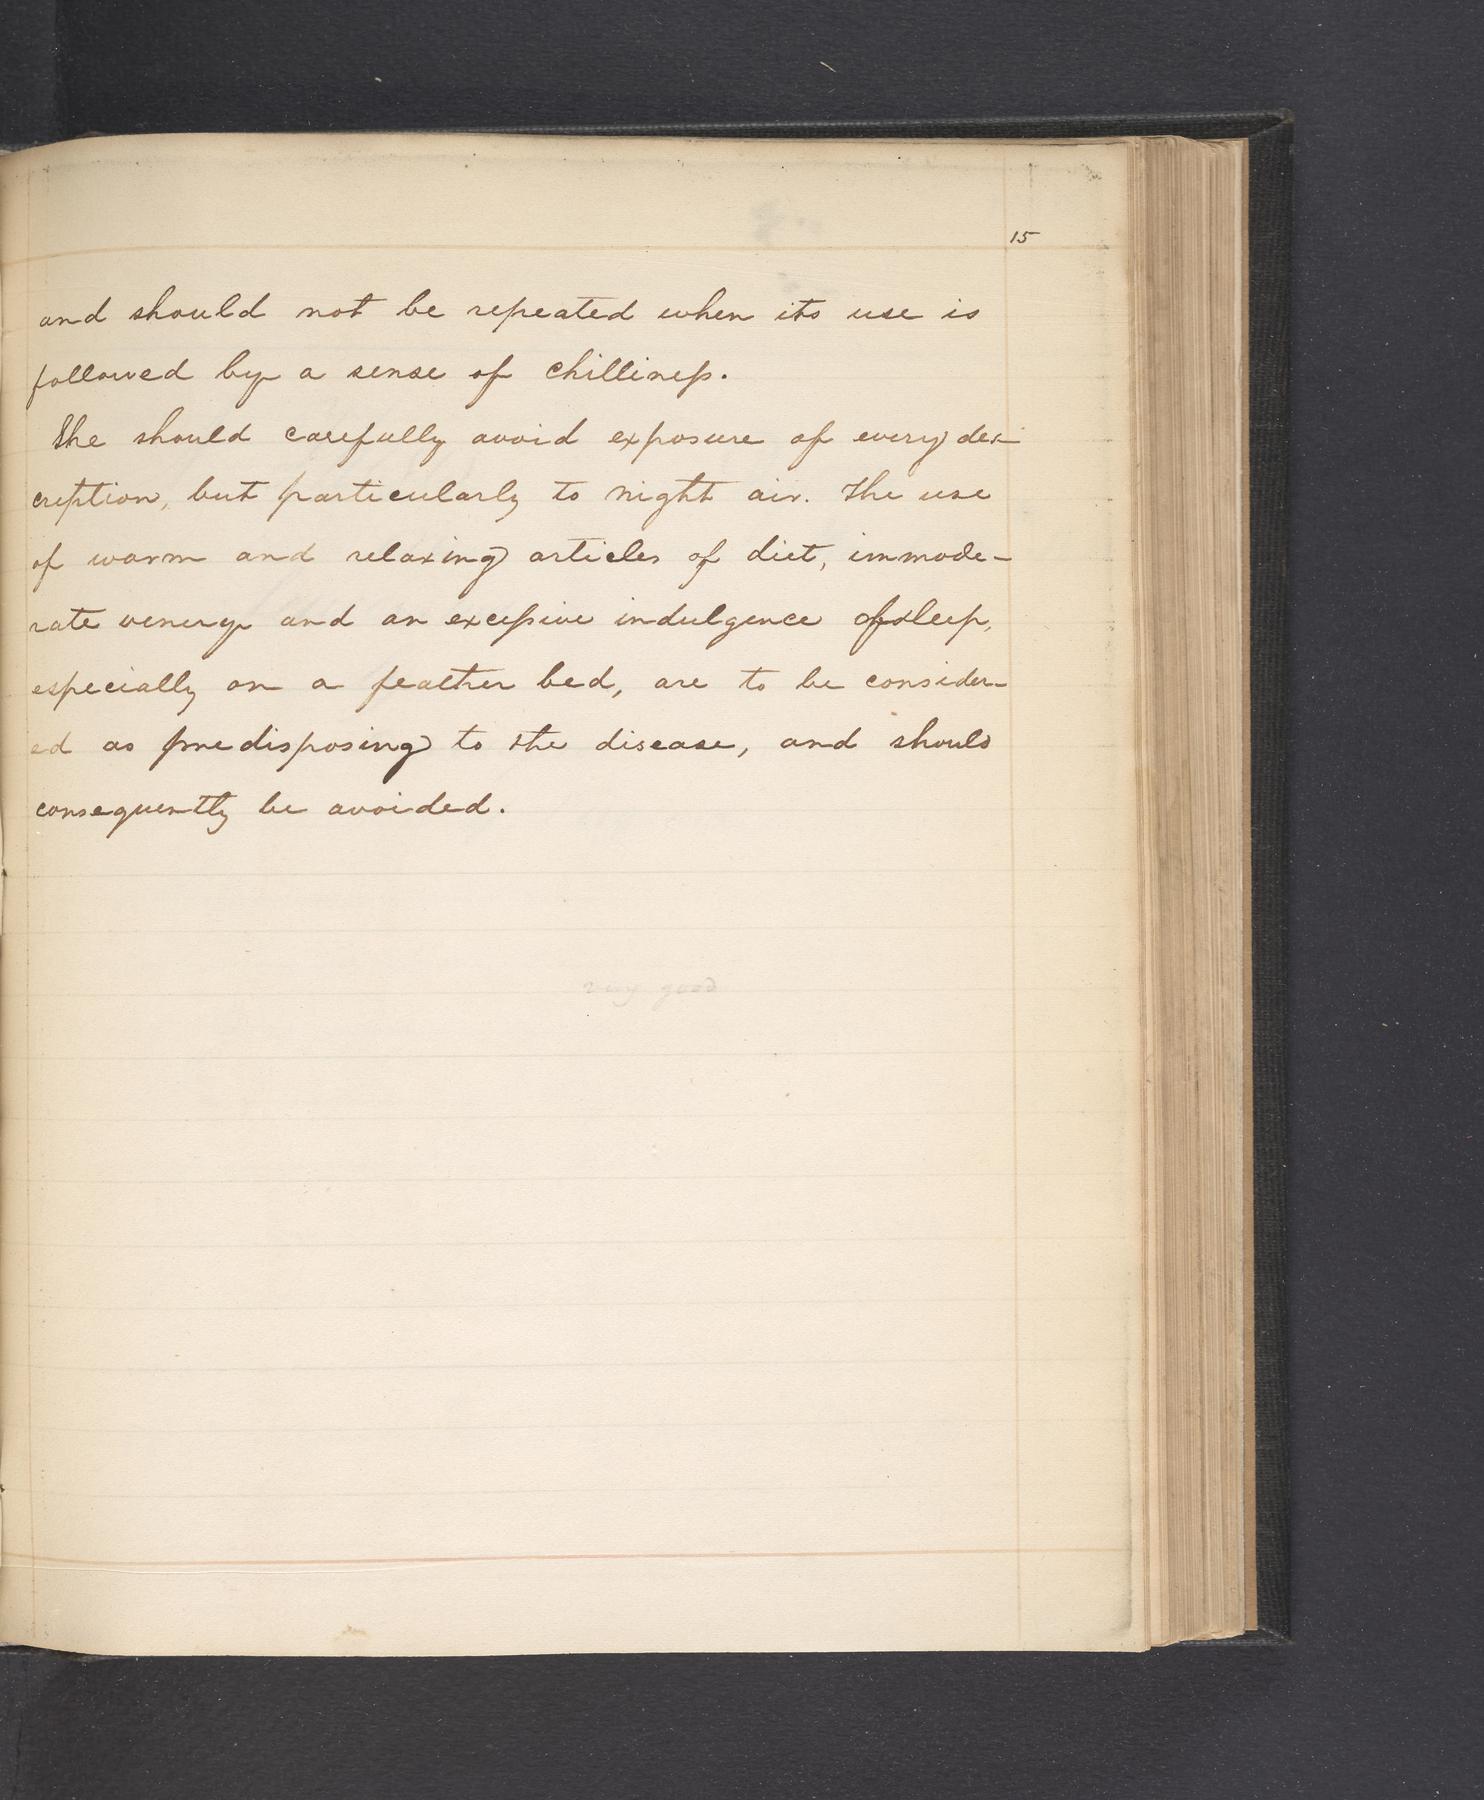 15
and should not be repeated when its use is
followed by a sense of chilliness.
She should carefully avoid exposure of every des-
cription, but particularly to night air. The use
of warm and relaxing articles of diet, immode-
rate venery and an excessive indulgence of sleep,
especially on a feather bed, are to be consider-
ed as predisposing to the disease, and should
consequently be avoided.
very good